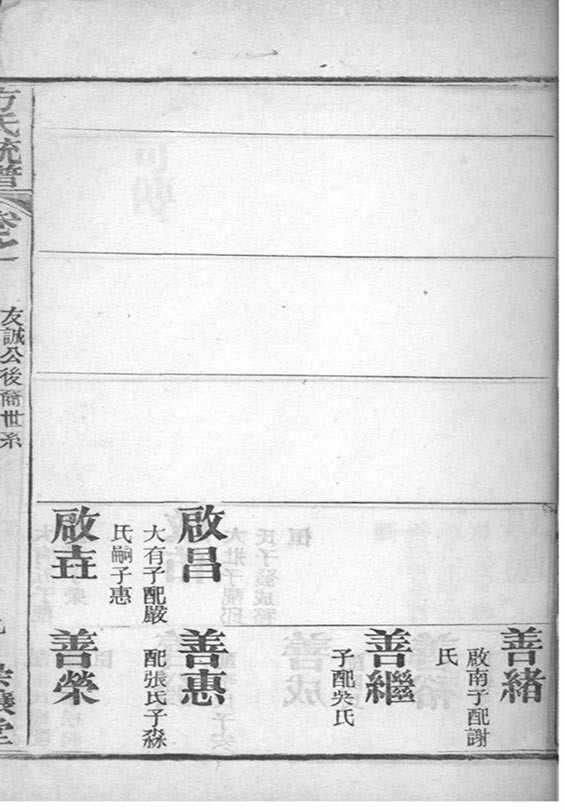 善緒
啟南子配謝
氏
善繼
子配吳氏
啟昌
大有子配嚴
氏嗣子惠
善惠
配張氏子淼
啟
善榮
方氏統譜
卷之一
友誠公後裔世系
讓堂